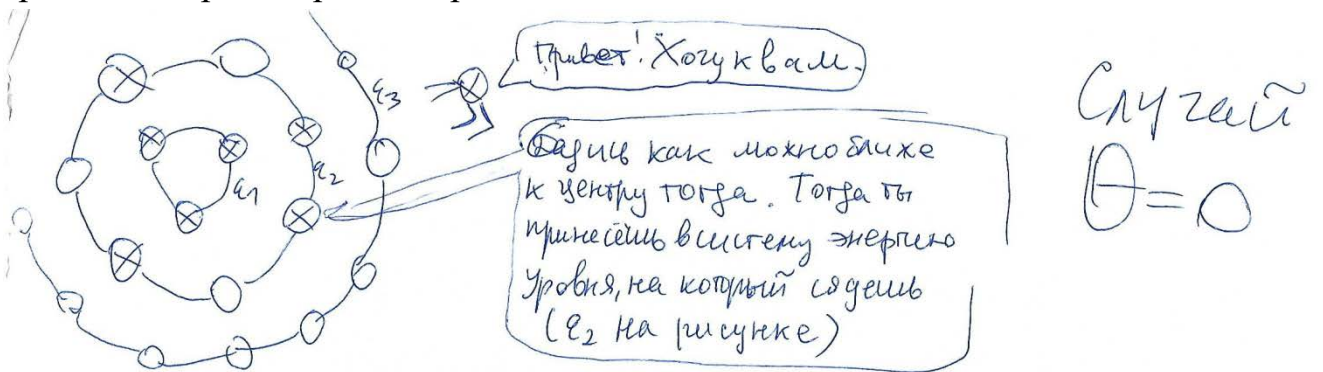 Привет! Хочу к вам.
Садись как можно ближе
к центру тогда. Тогда ты
принесёшь в систему энергию
уровня, на который сядешь
(ε₂ на рисунке)
ε₁
ε₂
ε₃
Случай
θ = 0